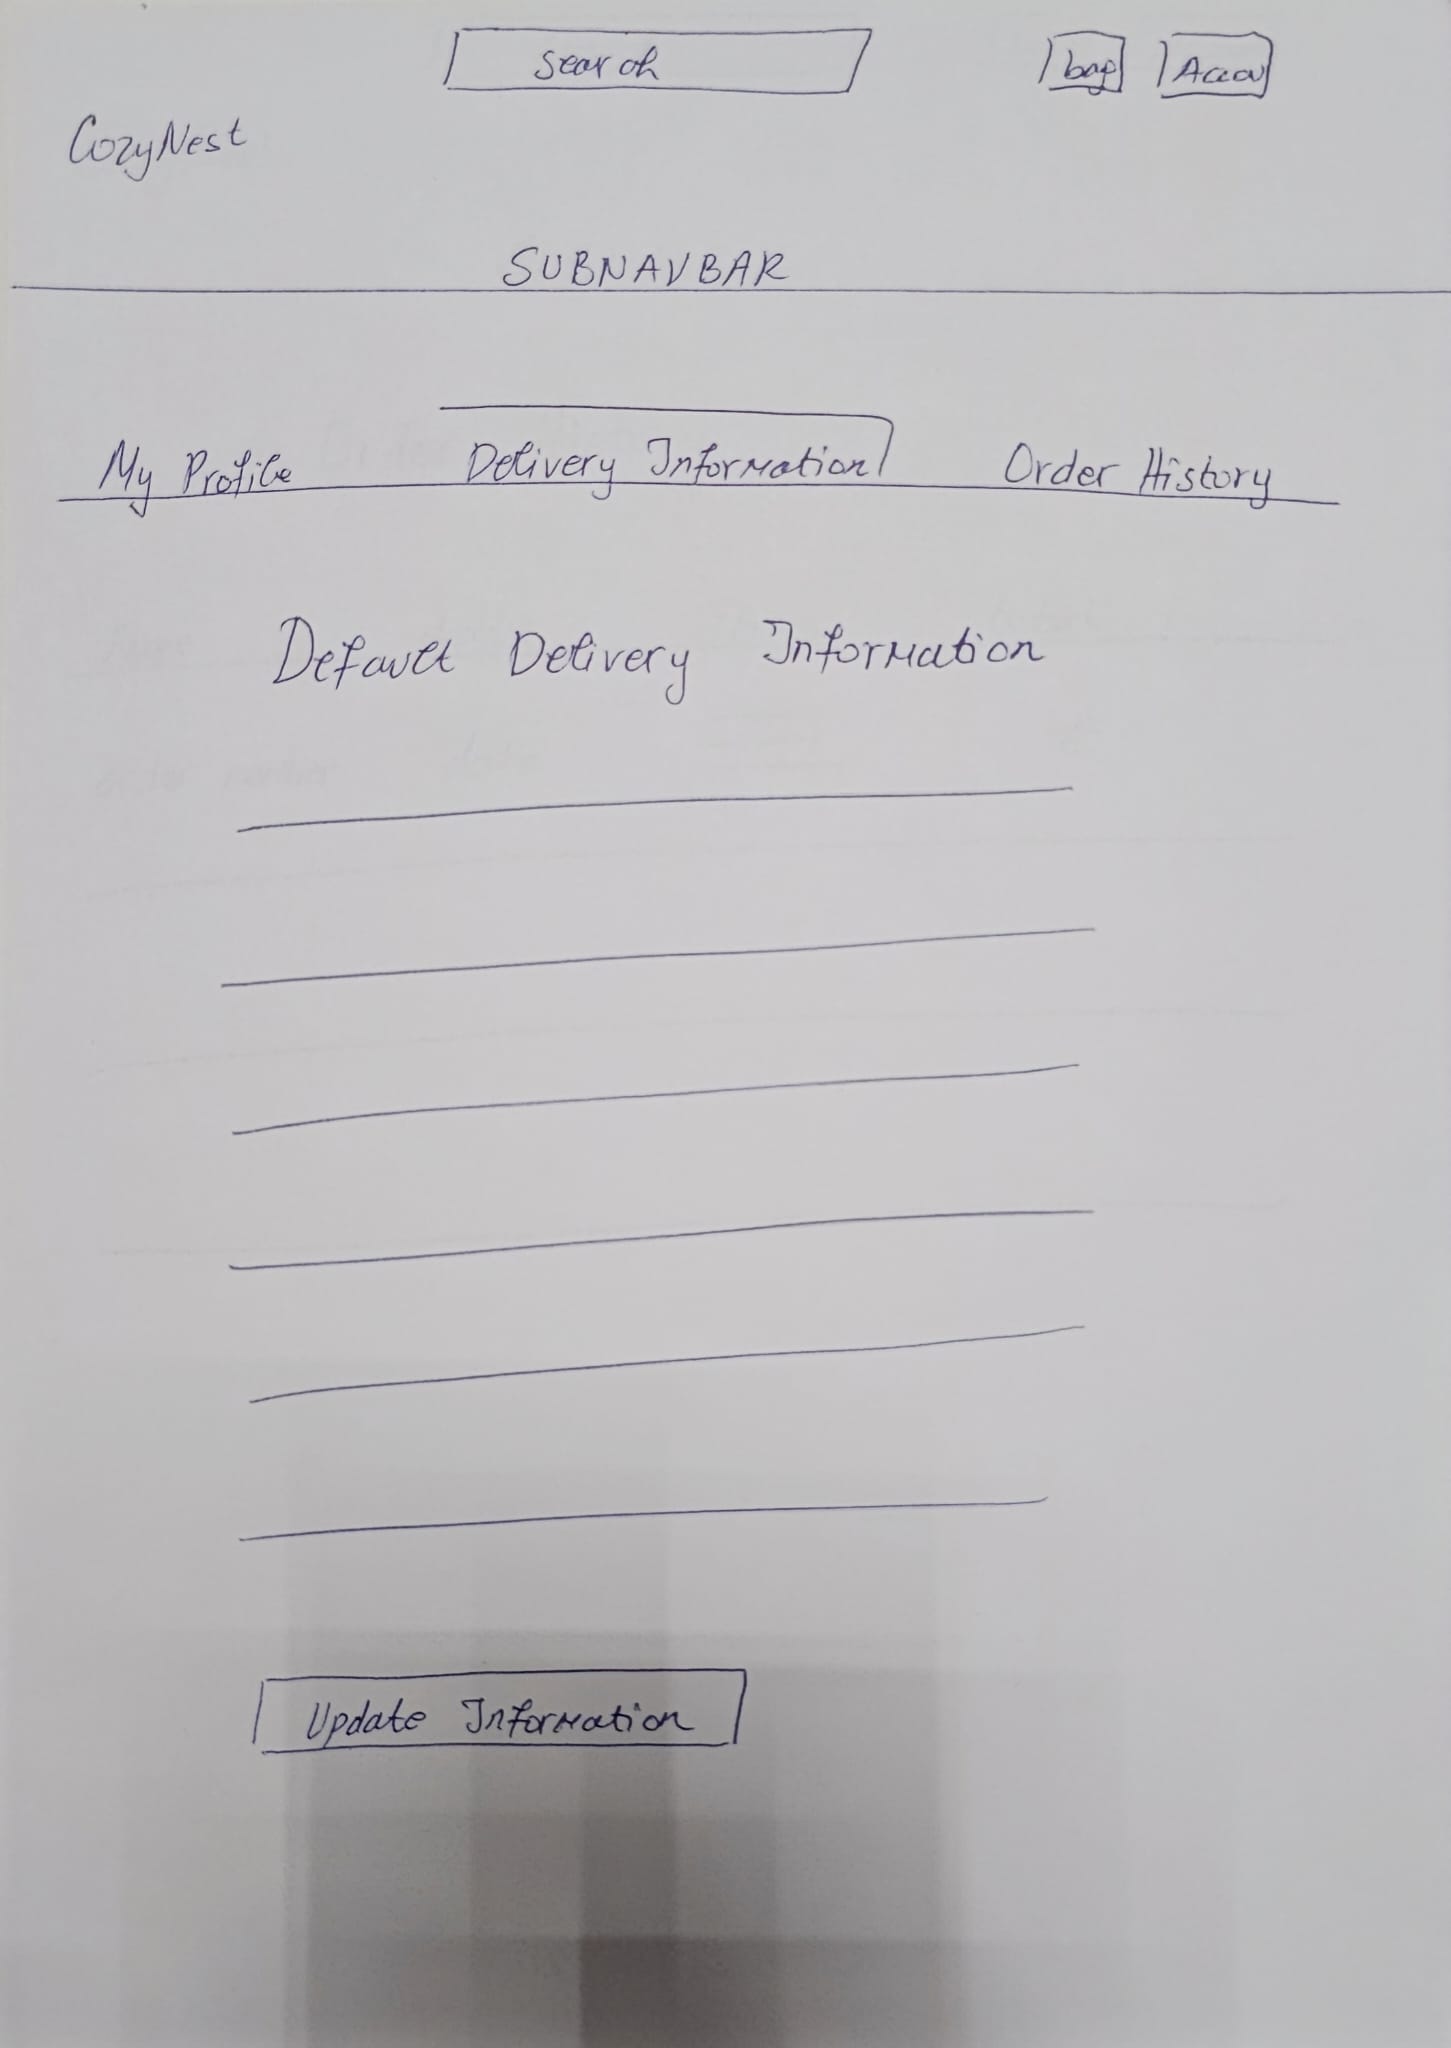 search
bag
Accou
CozyNest
SUBNAVBAR
My Profile Delivery Information Order History
Default Delivery Information
Update Information